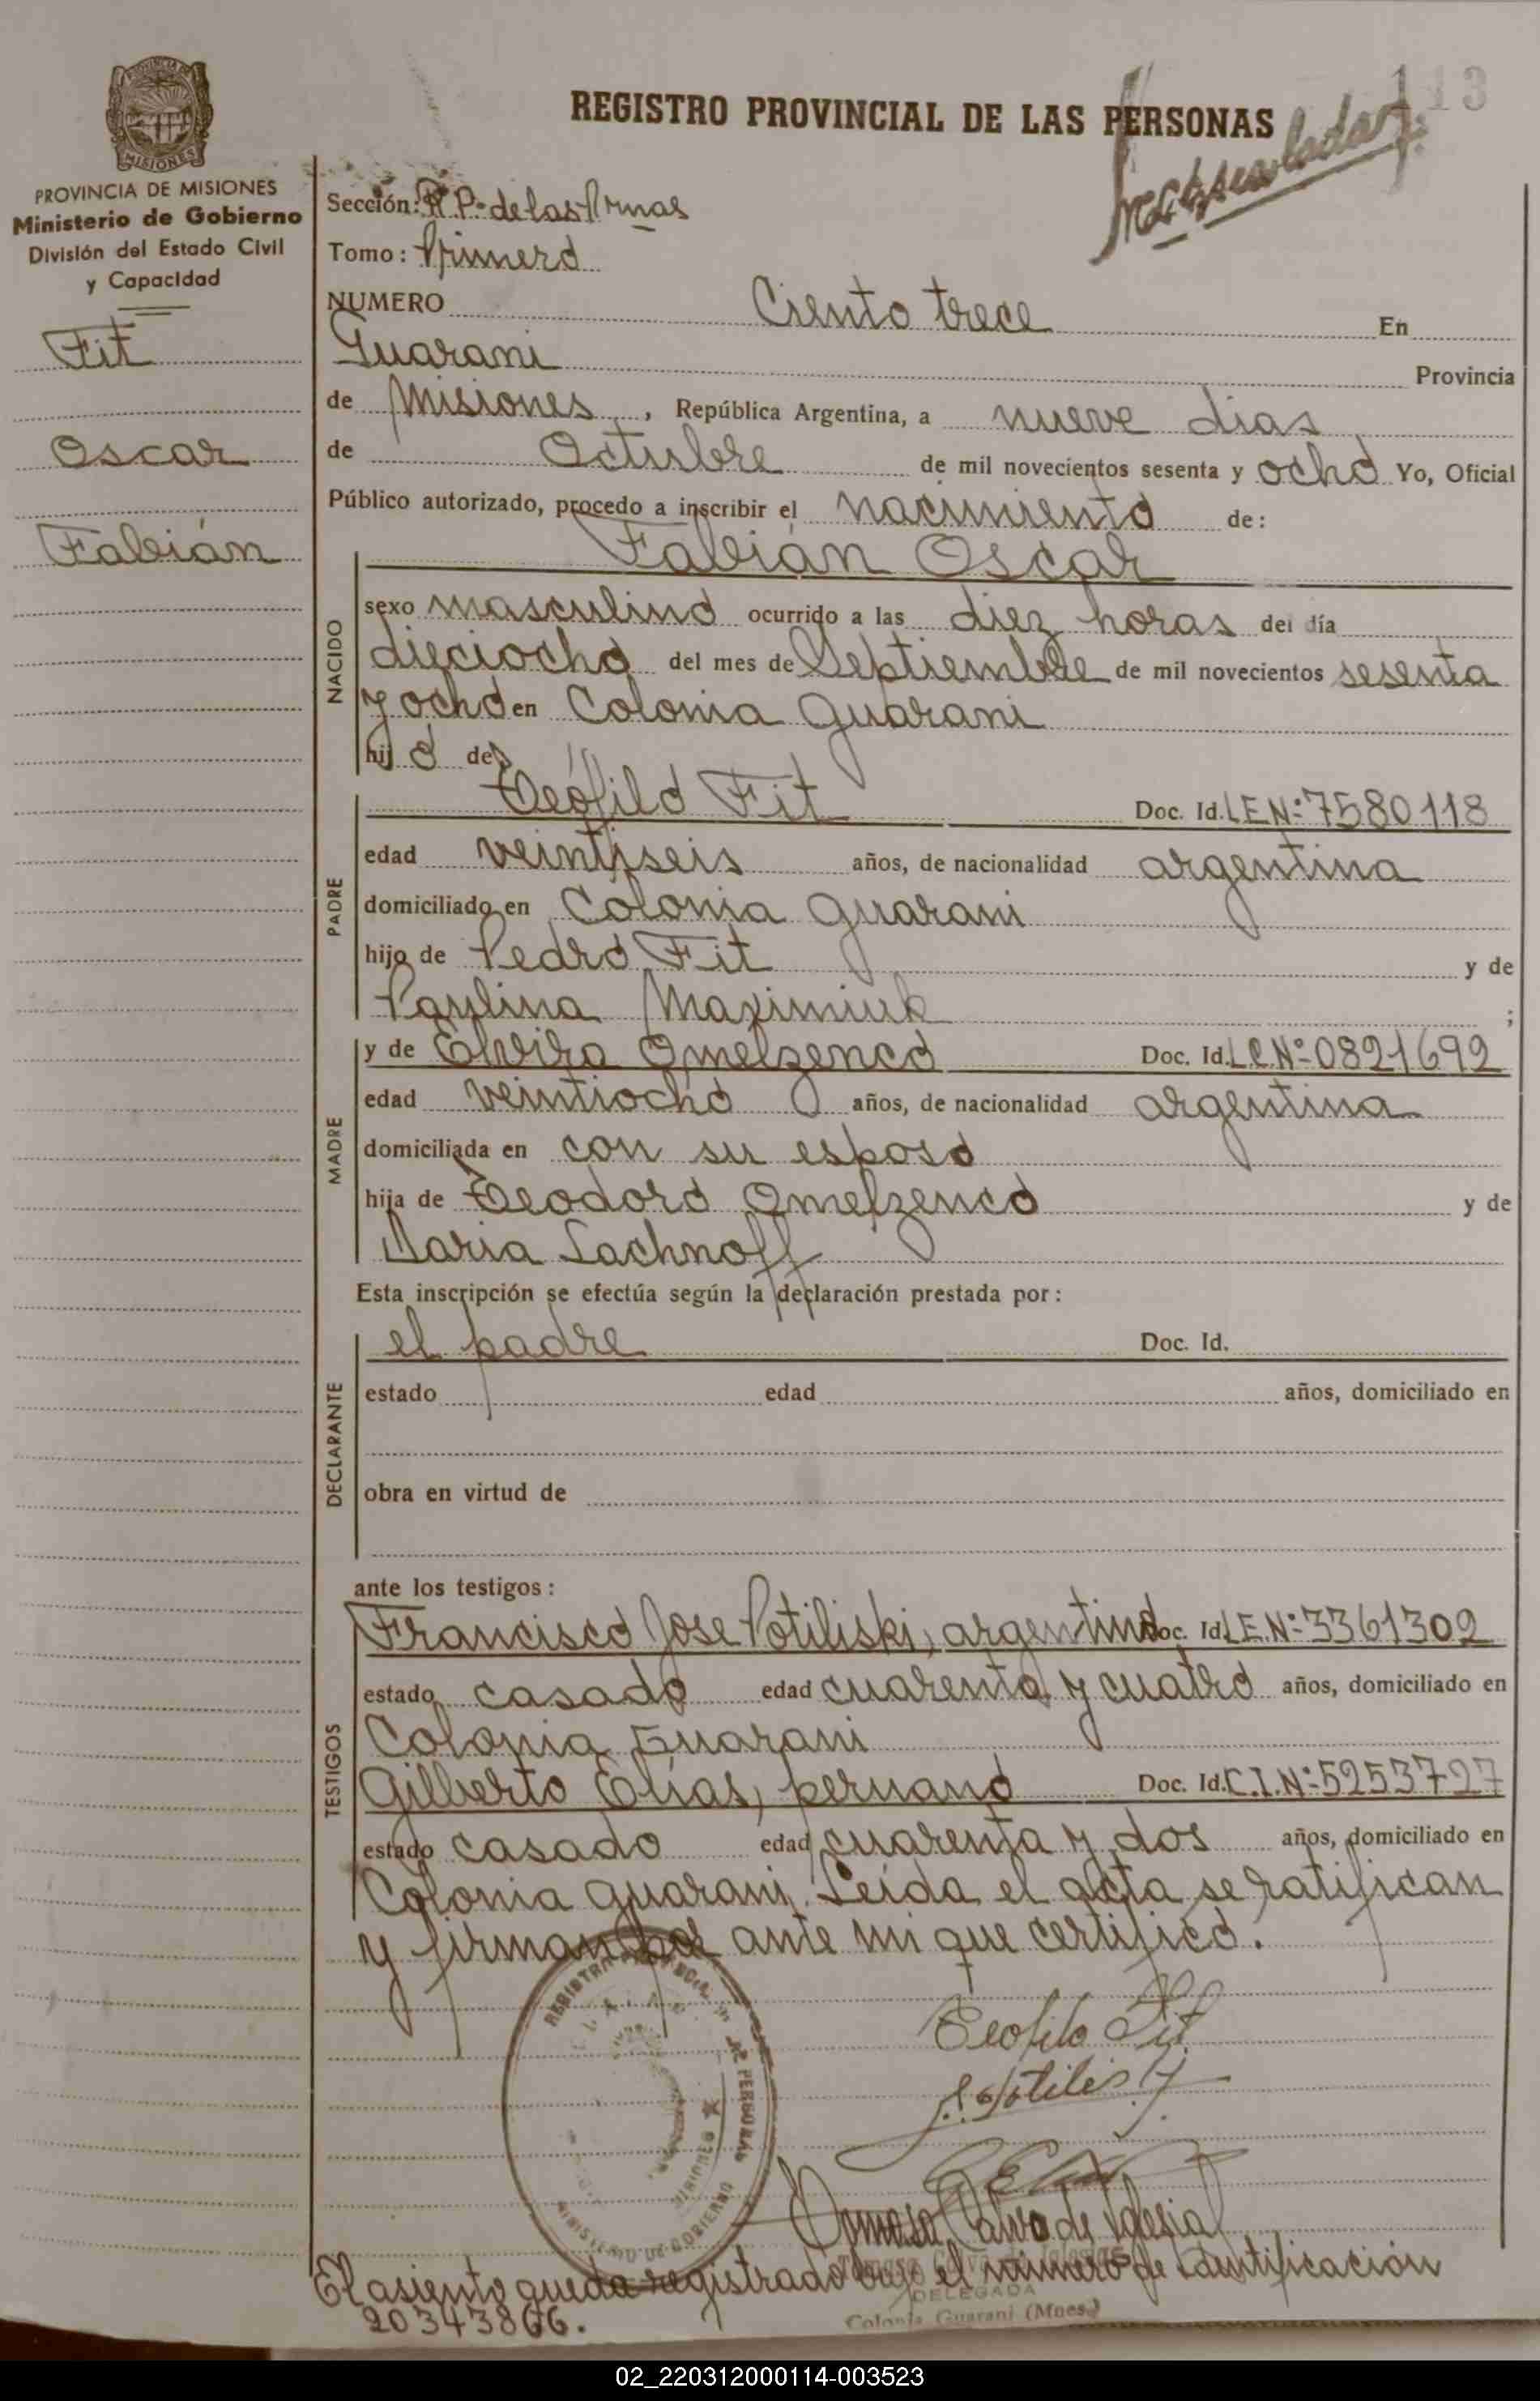 113
REGISTRO PROVINCIAL DE LAS PERSONAS
PROVINCIA DE MISIONES
Ministerio de Gobierno
División del Estado Civil
y Capacidad
Fit
Oscar
Fabián
Sección: R.P. de las Prnas
Tomo: Primero
NUMERO Ciento trece En
Guarani Provincia
de Misiones, República Argentina, a nueve dias
de Octubre de mil novecientos sesenta y ocho Yo, Oficial
Público autorizado, procedo a inscribir el nacimiento de:
Fabián Oscar
NACIDO
sexo masculino ocurrido a las diez horas del día
dieciocho del mes de Septiembre de mil novecientos sesenta
y ocho en Colonia Guarani
hijo de
PADRE
Teófilo Fit Doc. Id. L.E.Nº 7580118
edad veintiseis años, de nacionalidad argentina
domiciliado en Colonia Guarani
hijo de Pedro Fit y de
Paulina Maximiuk ;
MADRE
y de Elvira Omelzenco Doc. Id. L.C.Nº 0821692
edad veintiocho años, de nacionalidad argentina
domiciliada en con su esposo
hija de Teodoro Omelzenco y de
Maria Lachnoff
Esta inscripción se efectúa según la declaración prestada por:
DECLARANTE
el padre Doc. Id.
estado edad años, domiciliado en
obra en virtud de
ante los testigos:
TESTIGOS
Francisco Jose Potiliski, argentino Doc. Id. L.E.Nº 3361302
estado casado edad cuarenta y cuatro años, domiciliado en
Colonia Guarani
Gilberto Elías, peruano Doc. Id. C.I.Nº 5253727
estado casado edad cuarenta y dos años, domiciliado en
Colonia Guarani. Leída el acta se ratifican
y firman por ante mi que certifico.
Teofilo Fit
Tomasa Calvo de Iglesias
DELEGADA
Colonia Guarani (Mnes.)
El asiento queda registrado bajo el número de identificación
20343866.
02_220312000114-003523